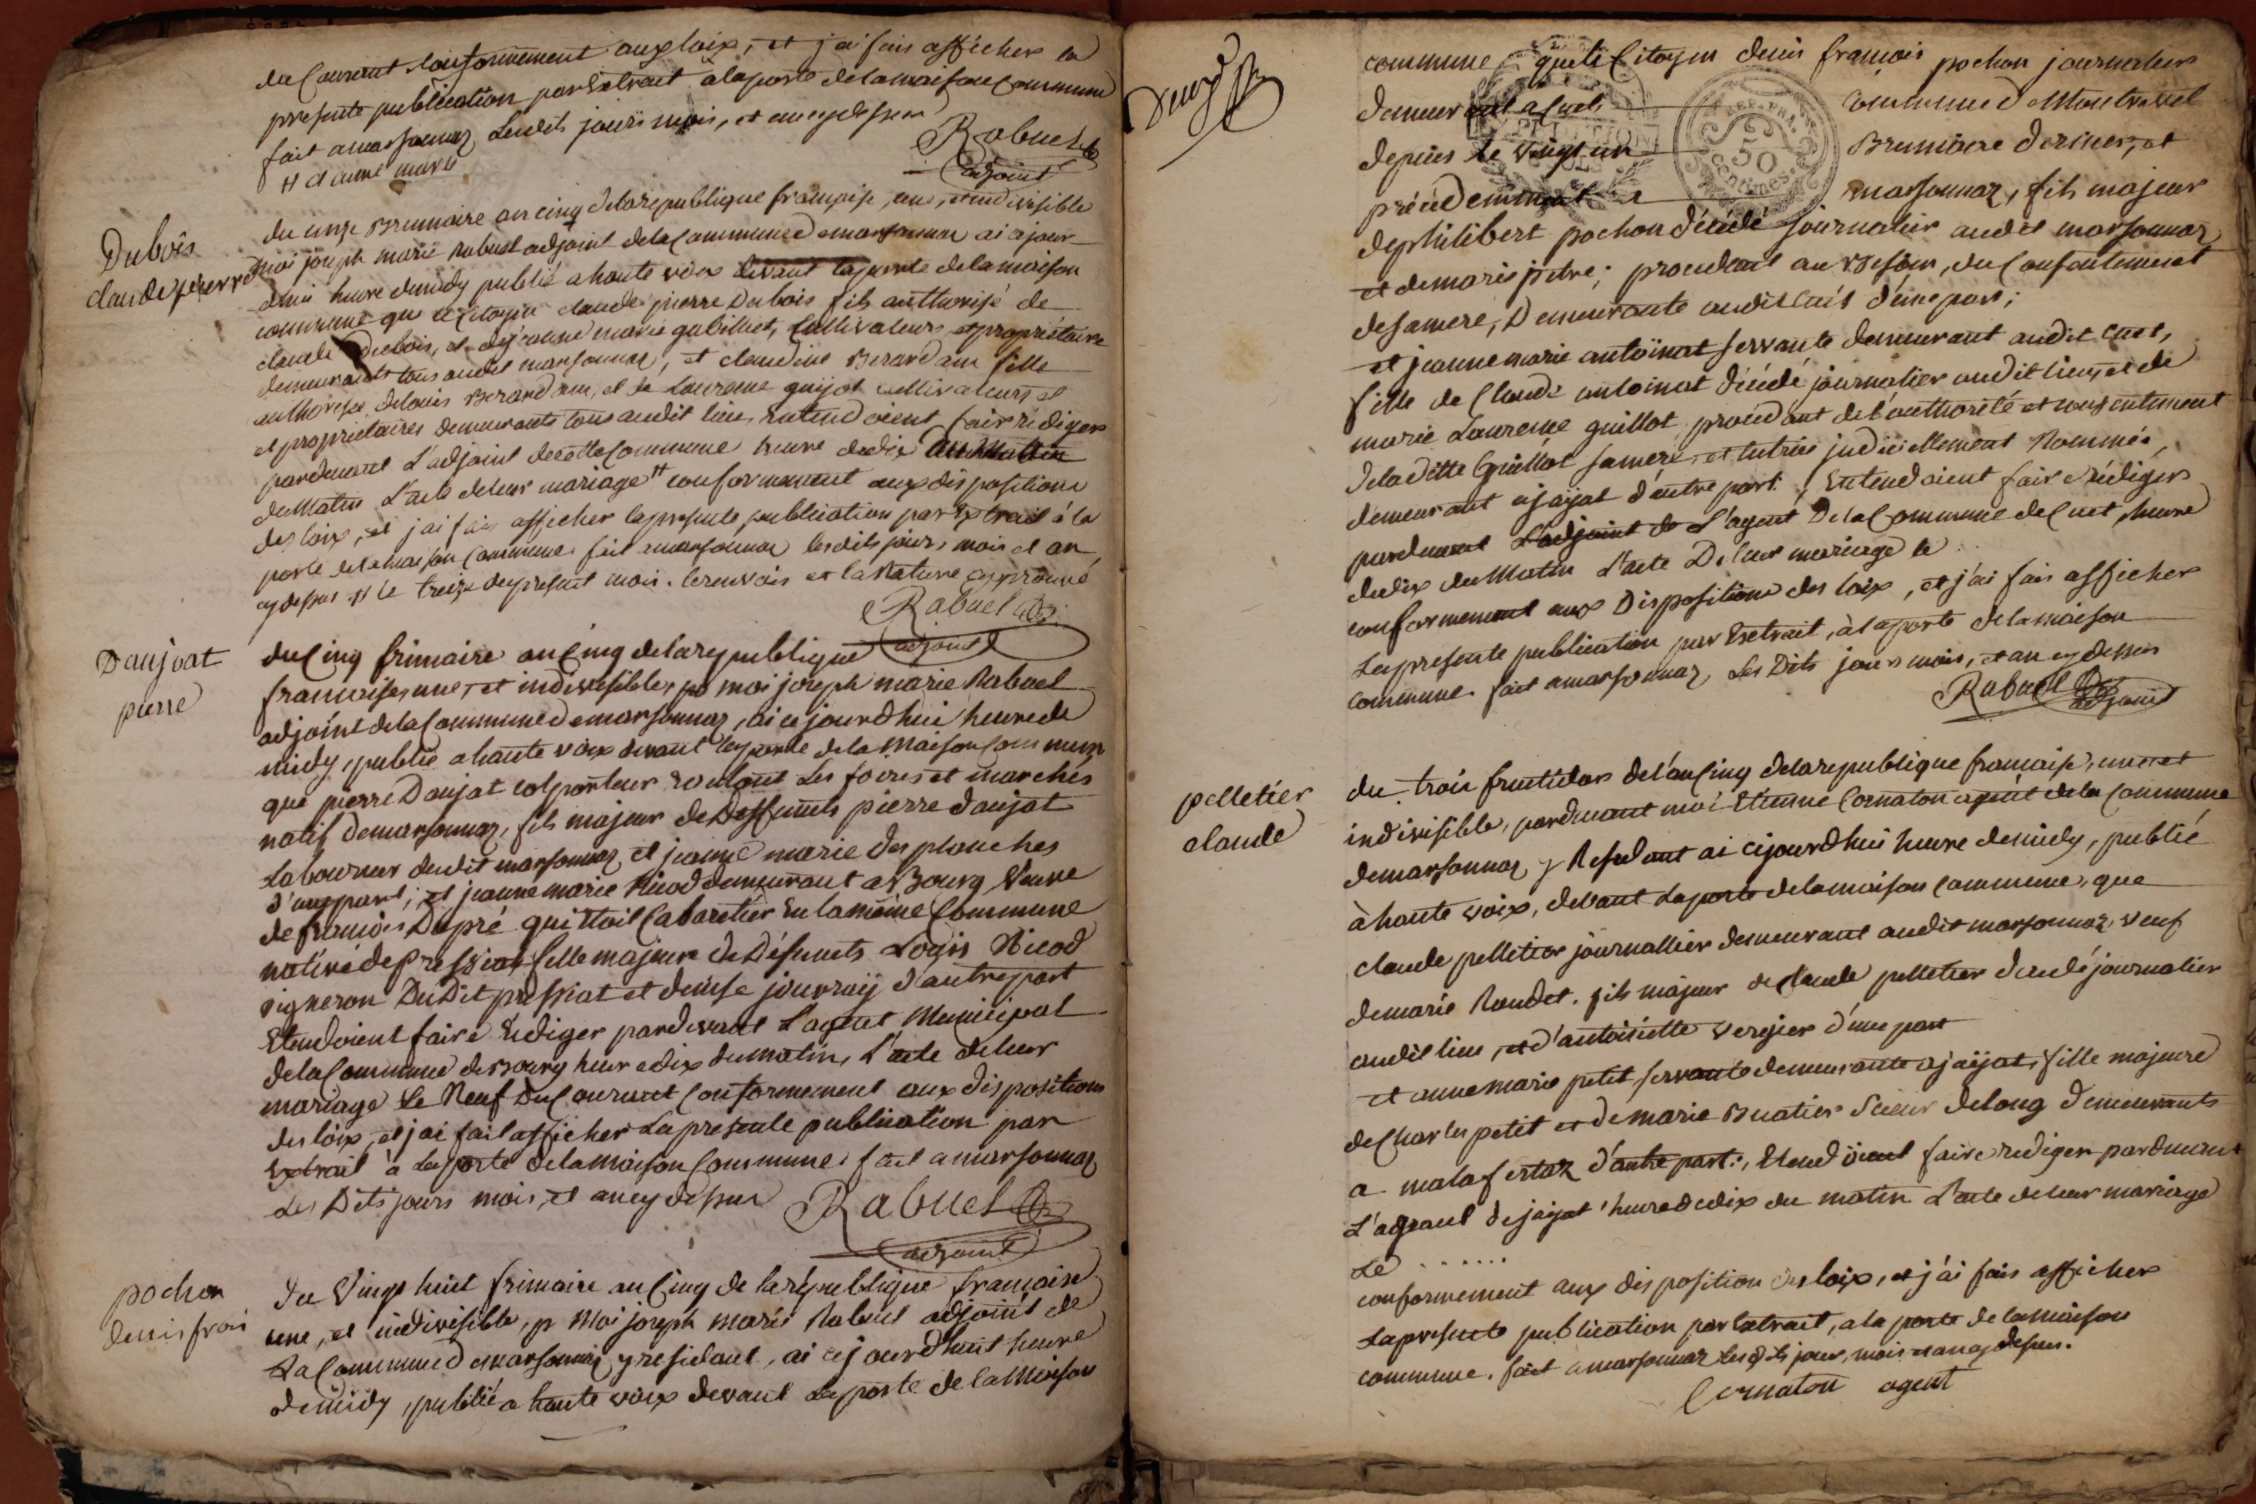 du Courant Conformement aux loix, et j'ai fais afficher la
presente publication par Extrait a la porte de la maison Commune
fait a marsonnaz Lesdits jours mois, et an cy dessus
Rabuel
adjoint
Dubois
claude pierre
du onze Brumaire an cinq de la republique françoise, une, et indivisible
moi joseph marie Rabuel adjoint de la Commune de marsonnaz ai cejour
heure de midy publié a haute voix devant la porte de la maison
commune que le Citoyen claude pierre Dubois fils authorisé de
claude Dubois, et de jeanne marie gabilliet, Cultivateurs et propriétaire
demeurants tous audit marsonnaz, et claudine Berardan fille
authorisée de louis Berardan, et de Laurence guijot cultivateurs et
et propriétaires demeurants tous audit lieu, Entendoient faire rédiger
pardevant L'adjoint de cette Commune heure de dix
du Matin L'acte de leur mariage conformement aux dispositions
des loix, et j'ai fais afficher la presente publication par Extrait à la
porte de la maison Commune. fait a marsonnaz lesdits jours, mois et an
cy dessus le treize du present mois. le renvois et la Rature approuvé
Rabuel
adjoint
Daujat
pierre
du Cinq frimaire an Cinq de la republique
francaise, une, et indivisible, moi joseph marie Rabuel
adjoint de la Commune de marsonnaz, ai cejourdhui heure de
midy, publié a haute voix devant la porte de la Maison commune
que pierre Daujat colporteur roulant Les foires et marchés
natif de marsonnaz, fils majeur de Deffunts pierre daujat
Laboureur dudit marsonnaz et jeanne marie des planches
d'une part; et jeanne marie Nicod demeurant a Bourg Veuve
de francois Dupré qui étoit Cabaretier En la même Commune
native de pressiat fille majeure de Défunts Louis Nicod
vigneron Du Dit pressiat et denise jouvray d'autre part
Etendoient faire Rédiger pardevant L'agent Municipal
de la Commune de Bourg heure dix du matin, L'acte de leur
mariage Le Neuf Du Courant Conformement aux dispositions
des loix, et j'ai fait afficher La presente publication par
Extrait à La porte de la Maison Commune. fait a marsonnaz
Les Dits jours mois, et an cy dessus
Rabuel
adjoint
pochon
denis frois
du Vingt huit frimaire an Cinq de la république francoise
une, et indivisible, p moi joseph marie Rabuel adjoint de
La Commune de marsonnaz y residant, ai cejourdhuit heure
de midy, publié a haute voix devant La porte de la Maison
commune que le Citoyen denis francois pochon journalier
demeurant a Cuet Commune de Montrevel
depuis le vingt un Brumaire dernier, et
précédemment a marsonnaz, fils majeur
de philibert pochon décédé journalier audit marsonnaz
et de marie pitre; procédant au Besoin, du Consentement
de sa mere, Demeurante audit Cuet d'une part;
et jeanne marie antoinat servante demeurant audit Cuet,
fille de Claude antoinat décédé journalier audit lieu, et de
marie Laurence guillot procédant de l'authorité et consentement
de la ditte Guillot sa mere, et tutrice judiciellement Nommée,
demeurant a jayat d'autre part, Entendoient faire rédiger
pardevant L'adjoint de L'agent De la Commune de Cuet, heure
de dix du Matin L'acte De leur mariage le
conformement aux Dispositions des loix, et j'ai fais afficher
La presente publication par Extrait, à la porte de la maison
commune. fait a marsonnaz, Les Dits jours mois, et an cy dessus
Rabuel
adjoint
pelletier
claude
du trois fructidor de l'an Cinq de la republique francaise, une et
indivisible, pardevant moi Etienne Cornaton agent de la Commune
de marsonnaz y Residant ai cejourdhui heure de midy, publié
à haute voix, devant La porte de la maison commune, que
claude pelletier journallier demeurant audit marsonnaz, veuf
de marie Roudet. fils majeur de claude pelletier décédé journalier
audit lieu, et d'antoinette vergier d'une part
et anne marie petit servante demeurante a jaÿat, fille majeure
de Charles petit et de marie Buatier Scieur de long demeurants
a malafertaz d'autre part, Etendoient faire rediger pardevant
L'agent de jayat heure de dix du matin L'acte de leur mariage
Le . . . . . .
conformement aux disposition des loix, et j'ai fais afficher
La presente publication par Extrait, a la porte de la maison
commune. fait a marsonnaz Lesdits jours, mois et an cy dessus.
Cornaton agent